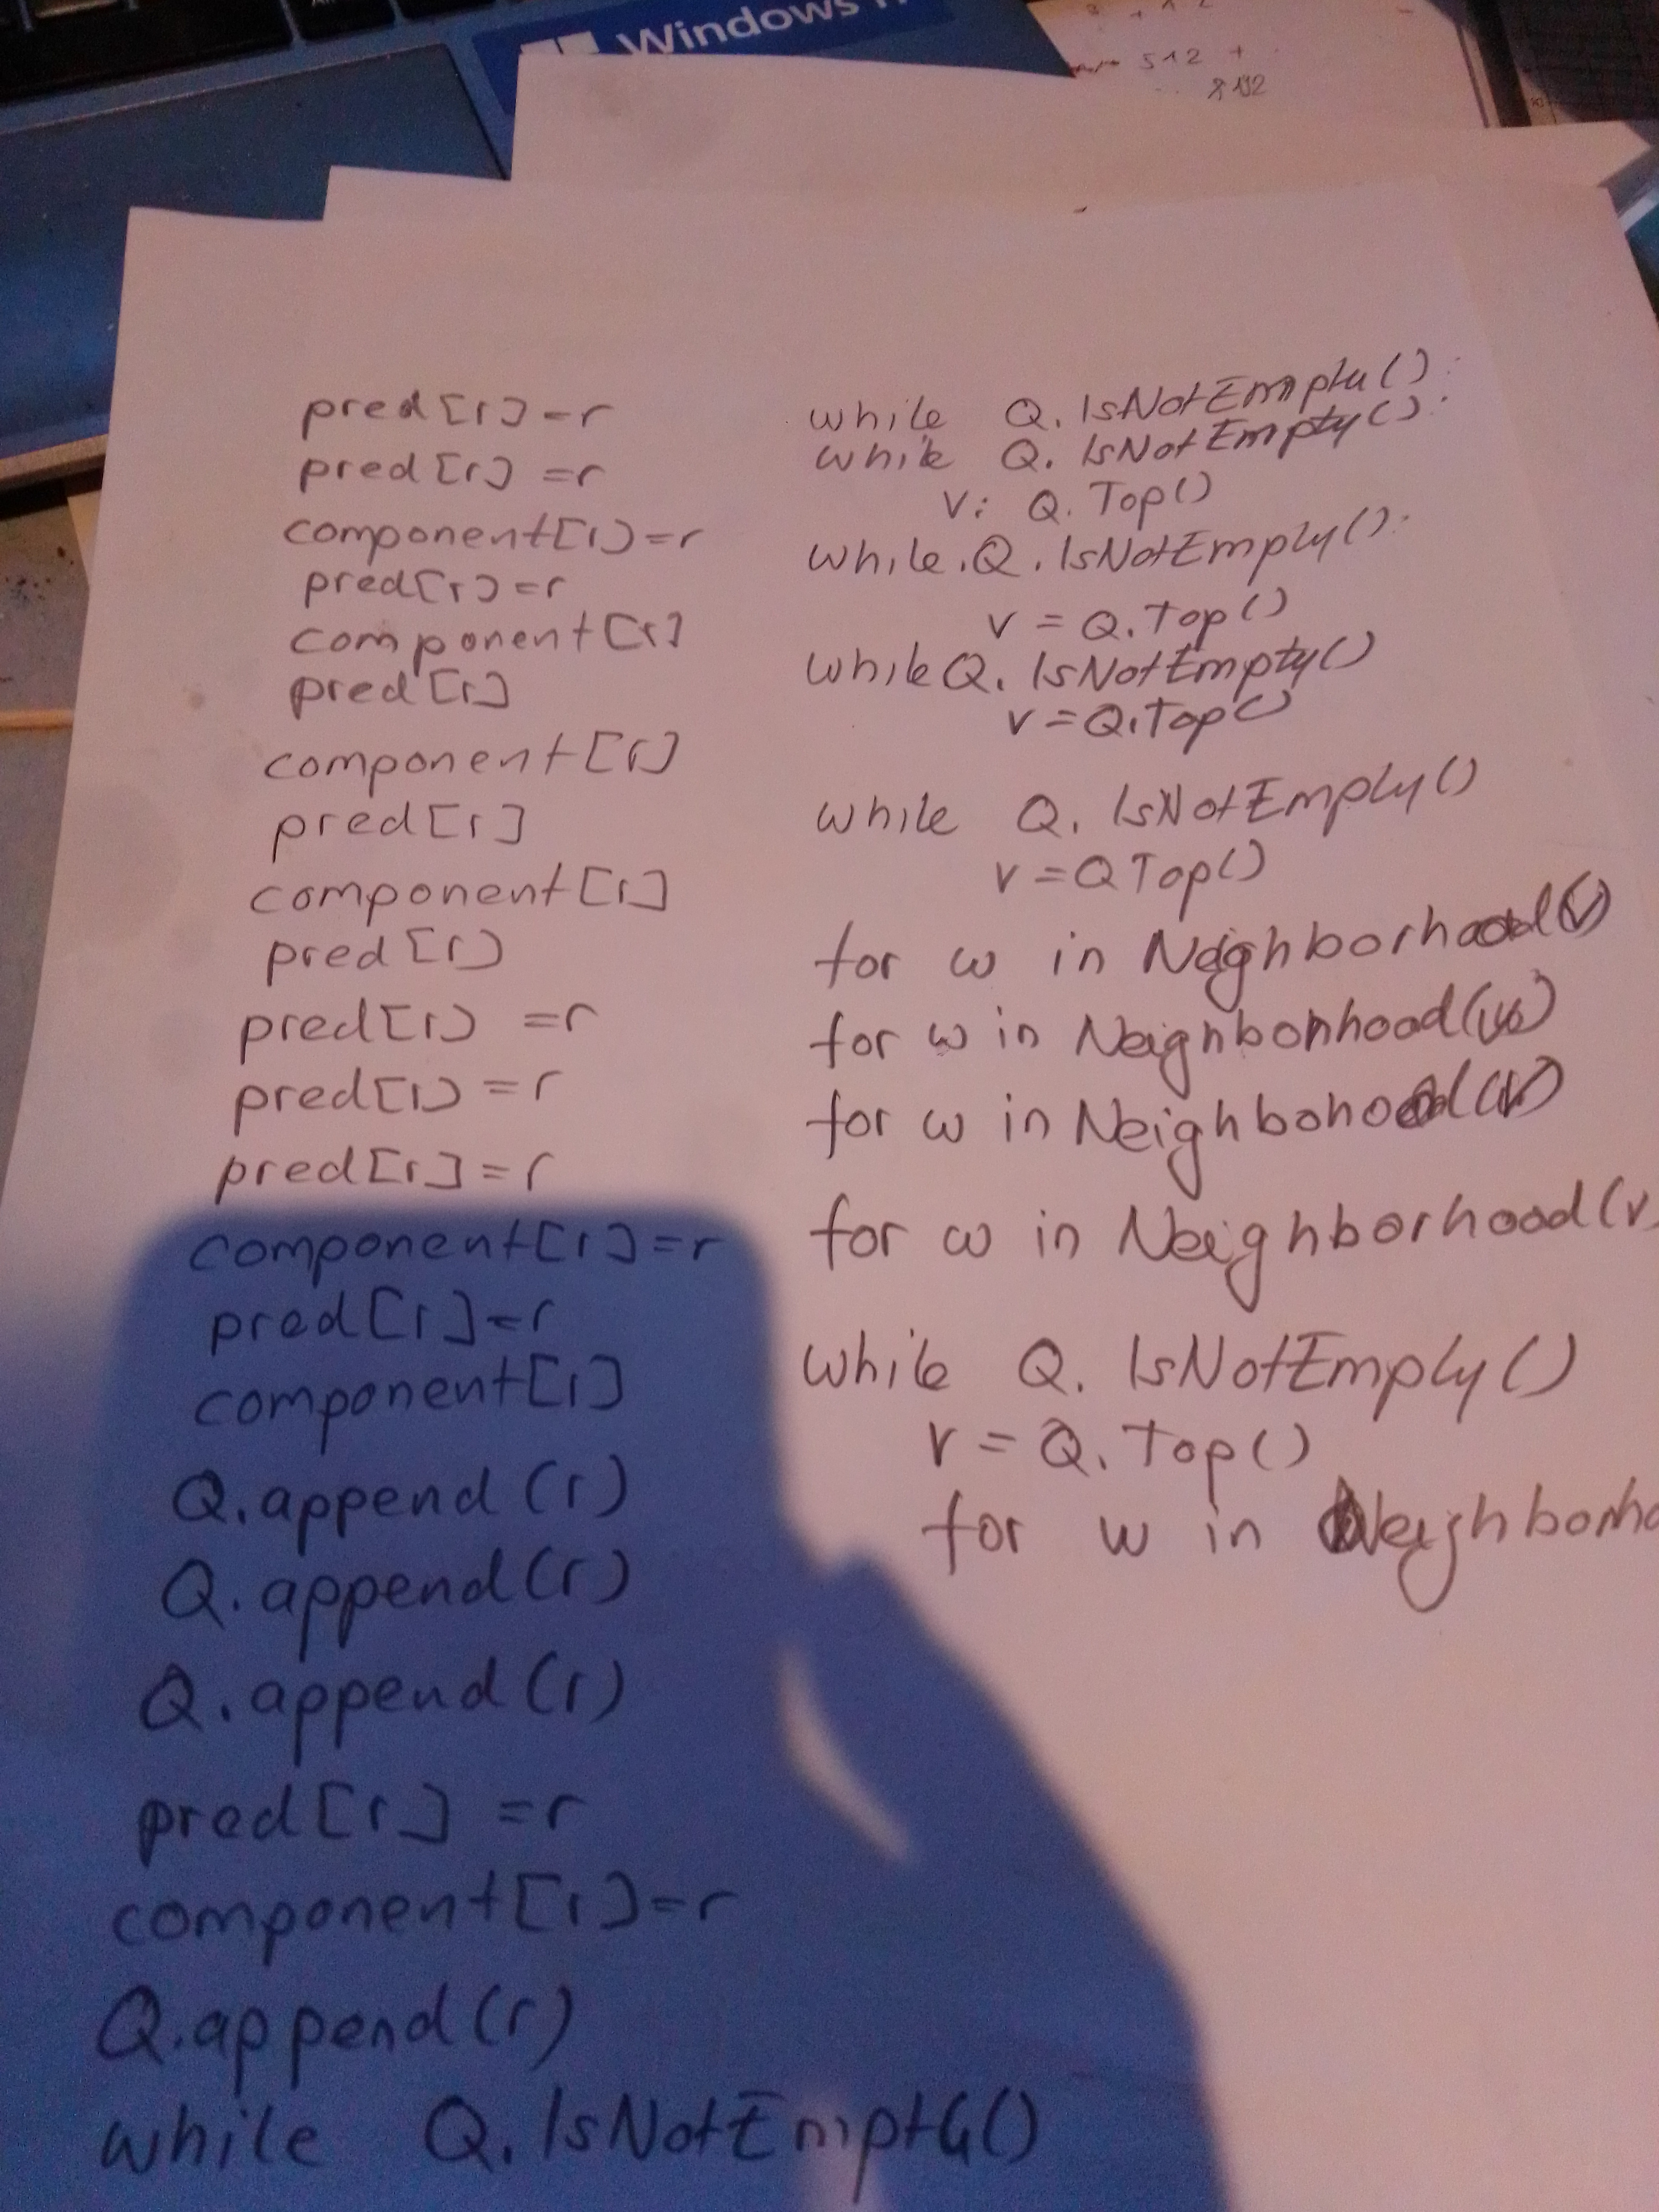 Windows
512 +
8192
pred[r]=r
pred[r] =r
component[r]=r
pred[r]=r
component[r]
pred[r]
component[r]
pred[r]
component[r]
pred[r]
pred[r] =r
pred[r] =r
pred[r]=r
component[r]=r
pred[r]=r
component[r]
Q.append(r)
Q.append(r)
Q.append(r)
pred[r] =r
component[r]=r
Q.append(r)
while Q.IsNotEmpty()
while Q.IsNotEmpty():
while Q.IsNotEmpty():
v: Q.Top()
while.Q.IsNotEmpty():
v = Q.Top()
while Q.IsNotEmpty()
v=Q.Top()
while Q.IsNotEmpty()
v=Q Top()
for w in Neighborhood(v)
for w in Neighbonhood(v)
for w in Neighbohood(v)
for w in Neighborhood(v)
while Q.IsNotEmpty()
v = Q.Top()
for w in Neighborho